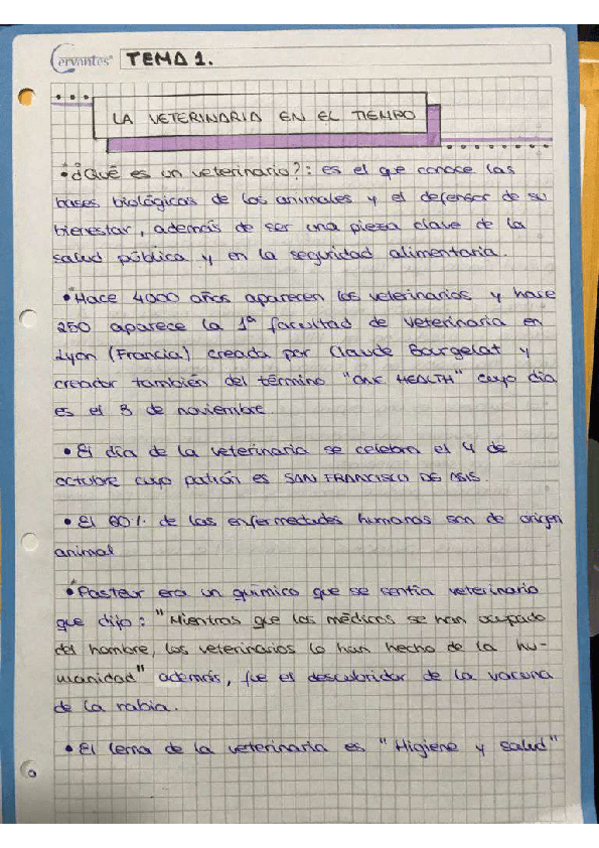 Cervantes TEMA 1.
LA VETERINARIA EN EL TIEMPO
• ¿Qué es un veterinario?: es el que conoce las
bases biológicas de los animales y el defensor de su
bienestar, además de ser una pieza clave de la
salud pública y en la seguridad alimentaria.
• Hace 4000 años aparecen los veterinarios y hace
250 aparece la 1ª facultad de Veterinaria en
Lyon (Francia) creada por Claude Bourgelat y
creador también del término "ONE HEALTH" cuyo día
es el 3 de noviembre
• El día de la veterinaria se celebra el 4 de
octubre cuyo patrón es SAN FRANCISCO DE ASIS.
• El 60% de las enfermedades humanas son de origen
animal
• Pasteur era un químico que se sentía veterinario
que dijo: "Mientras que los médicos se han ocupado
del hombre, los veterinarios lo han hecho de la hu-
manidad" además, fue el descubridor de la vacuna
de la rabia.
• El lema de la veterinaria es "Higiene y salud"